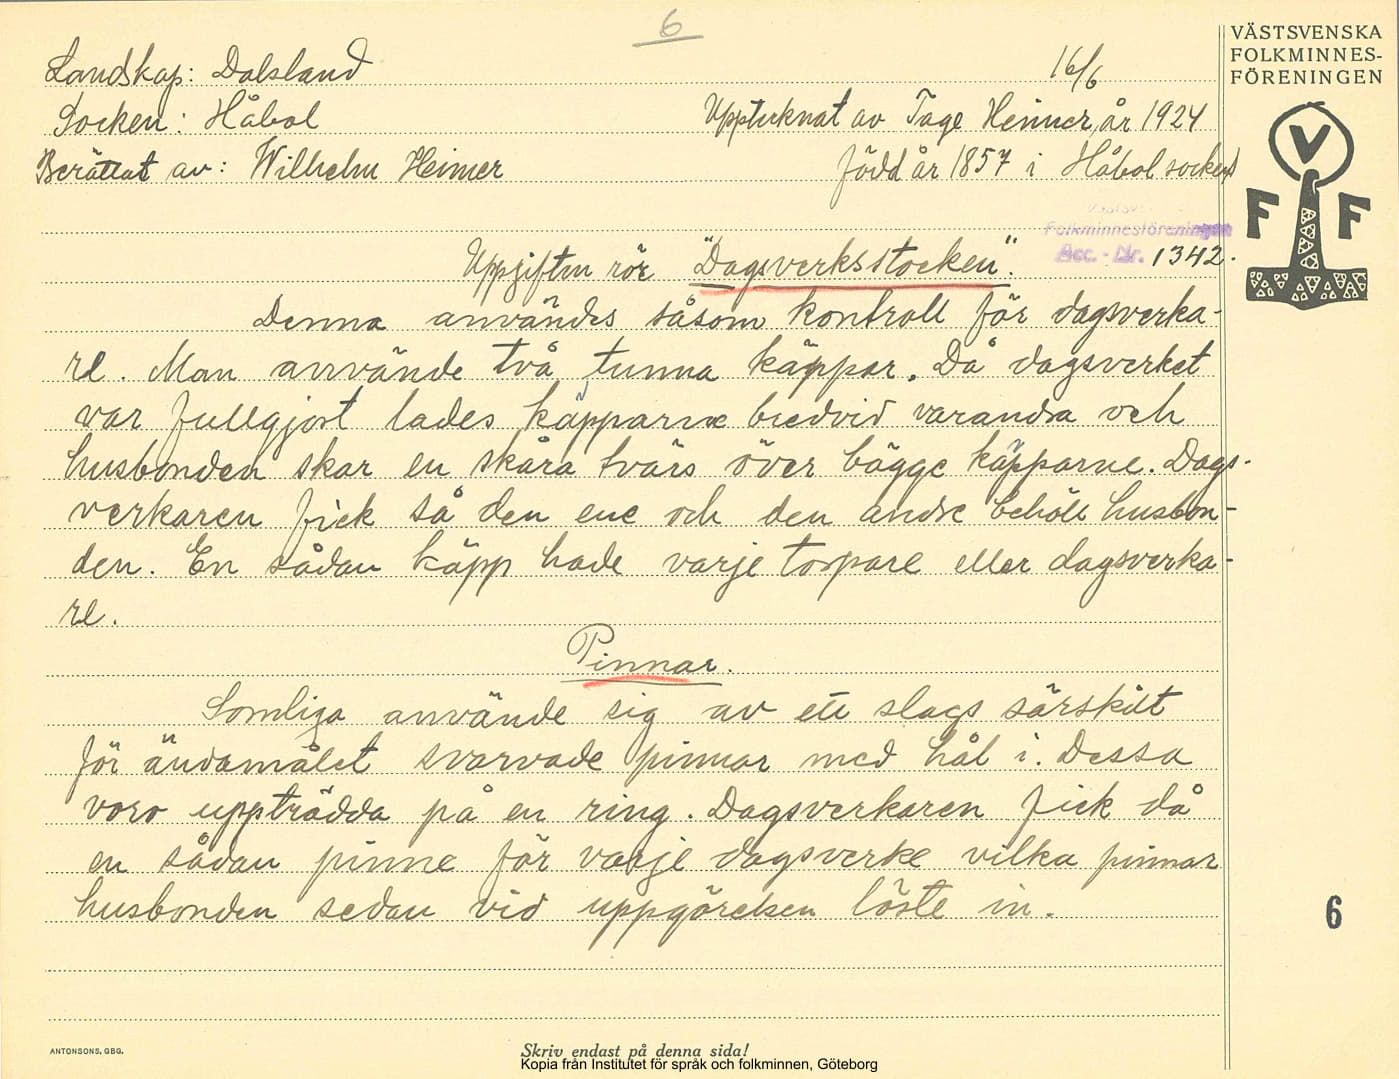 6
VÄSTSVENSKA
FOLKMINNES-
FÖRENINGEN
Landskap: Dalsland
16/6
Socken: Håbol
Upptecknat av Tage Heimer, år 1924
Berättat av: Wilhelm Heimer
född år 1857 i Håbol socken
V
F F
Folkminnesföreningen
Acc. - Nr. 1342.
Uppgiften rör "Dagsverksstocken".
Denna användes såsom kontroll för dagsverka-
re. Man använde två tunna käppar. Då dagsverket
var fullgjort lades käpparne bredvid varandra och
husbonden skar en skåra tvärs över bägge käpparne. Dags-
verkaren fick så den ene och den andre behöll husbon-
den. En sådan käpp hade varje torpare eller dagsverka-
re.
Pinnar.
Somliga använde sig av ett slags särskilt
för ändamålet svarvade pinnar med hål i. Dessa
voro uppträdda på en ring. Dagsverkaren fick då
en sådan pinne för varje dagsverke vilka pinnar
husbonden sedan vid uppgörelsen löste in.
6
ANTONSONS, GBG.
Skriv endast på denna sida!
Kopia från Institutet för språk och folkminnen, Göteborg